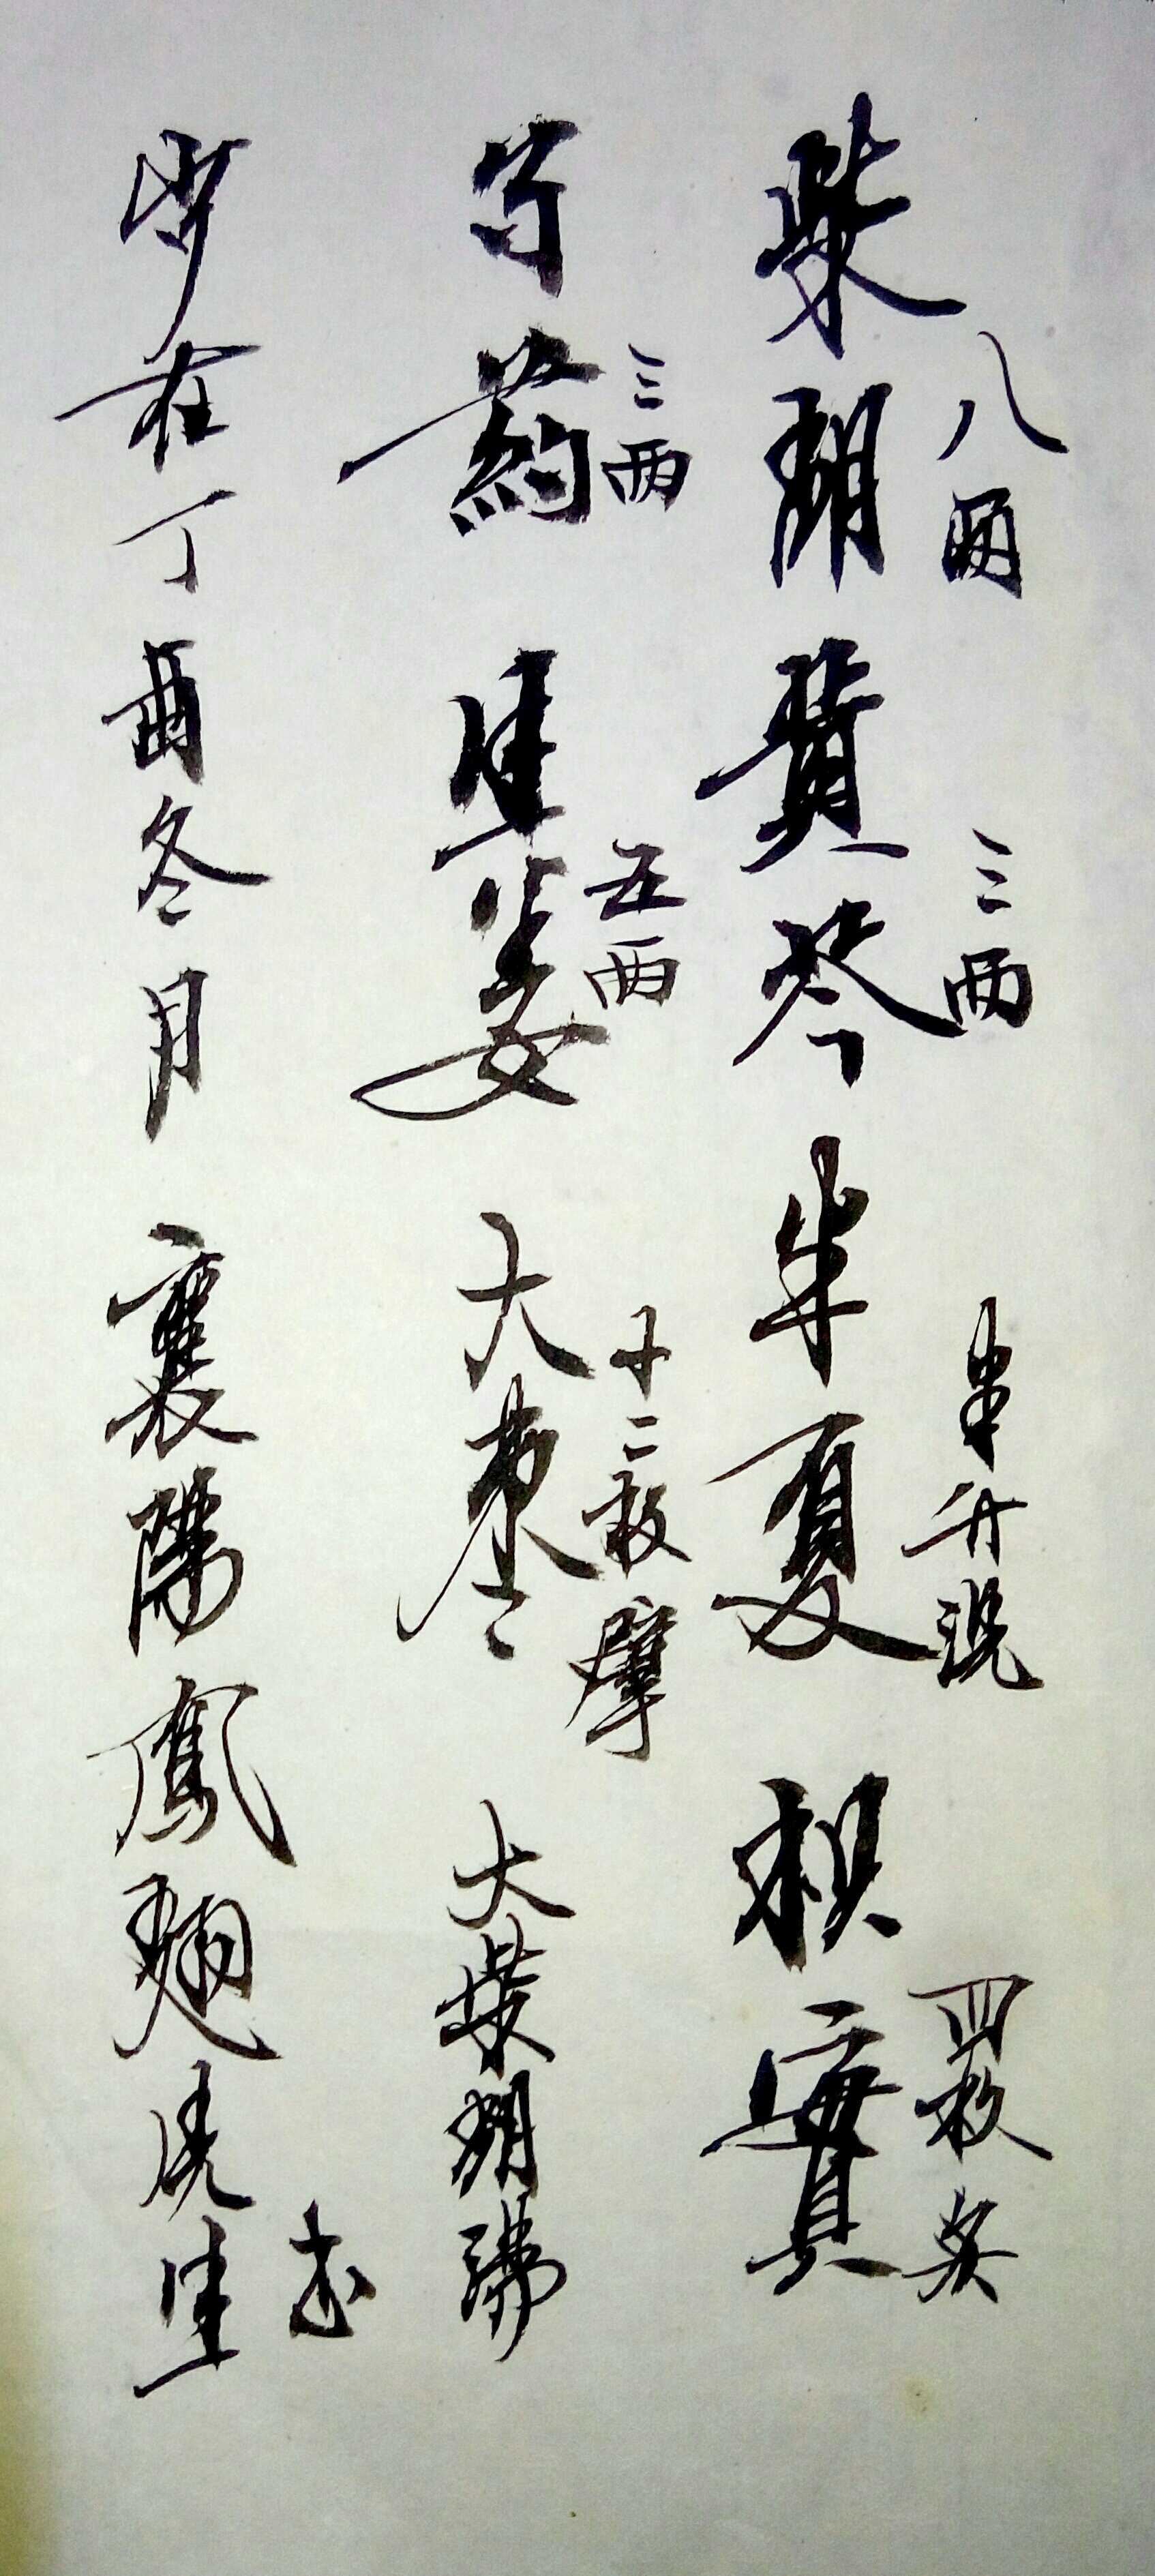 柴胡八兩 黄芩三兩 半夏半升洗 枳實四枚炙
芍药三两 生姜五两 大枣十二枚擘 大柴胡湯
时在丁酉冬月 襄陽鳳翅先生书